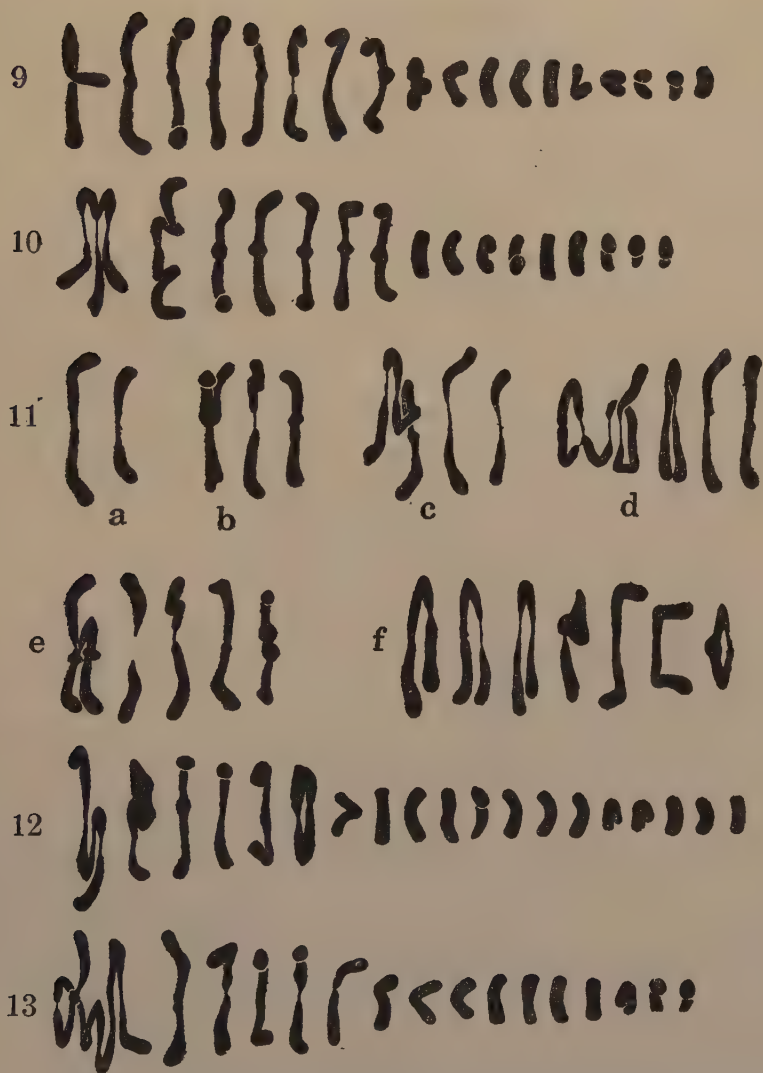 9
10
11
a b c d
e f
12
13